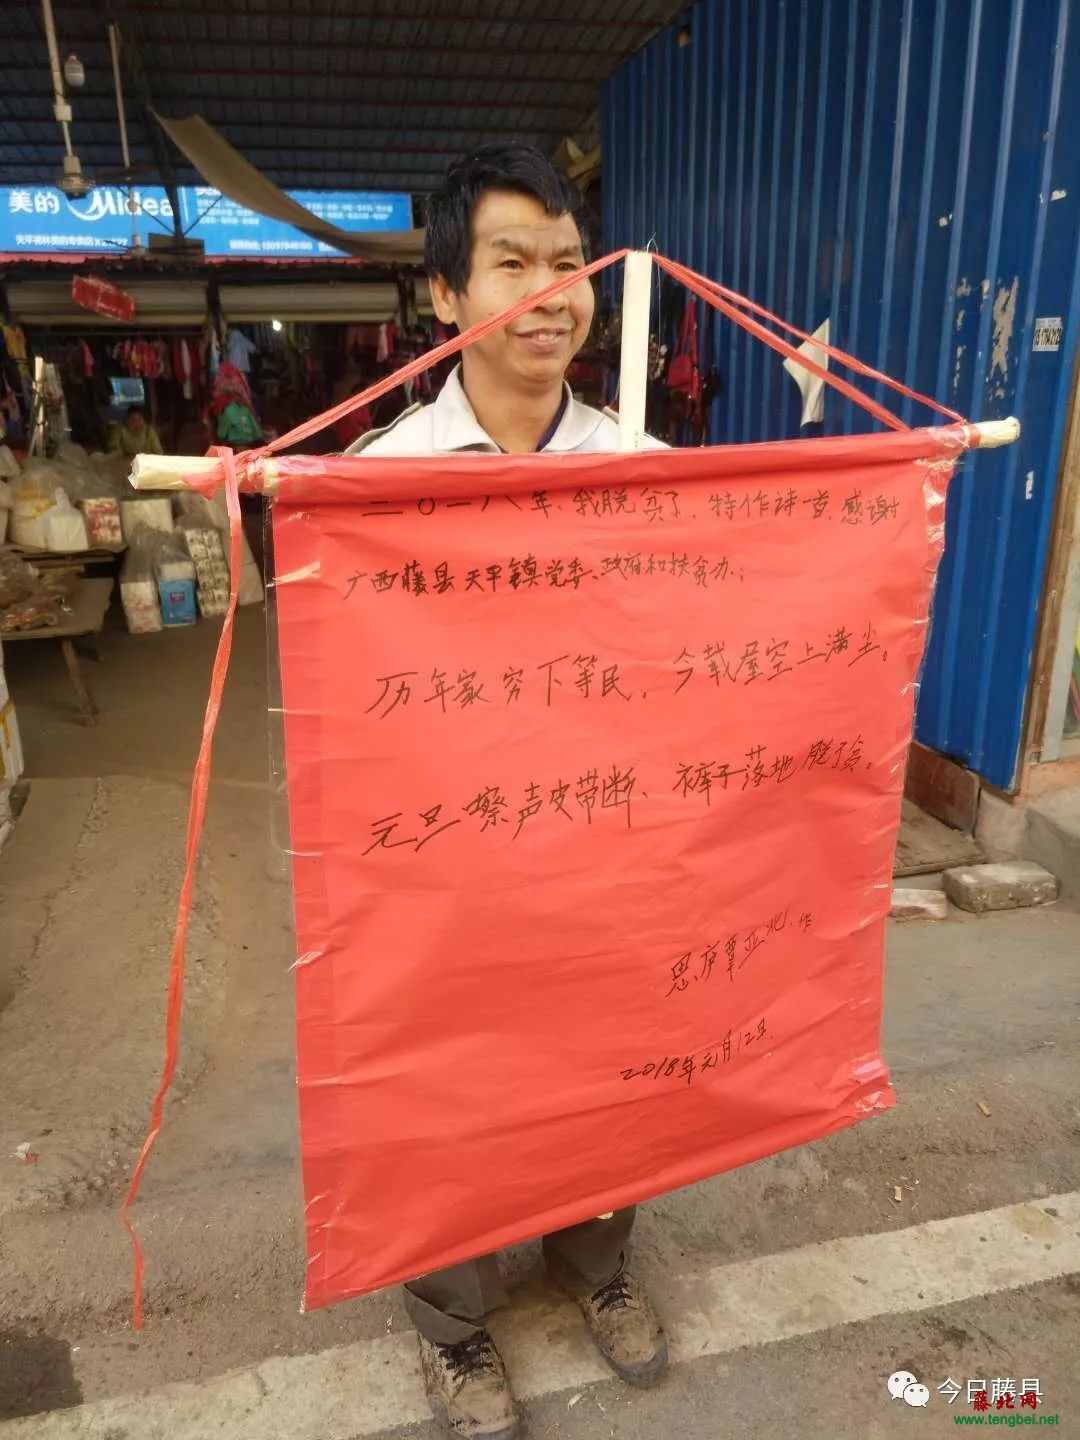 美的 Midea
二〇一八年、我脱贫了、特作诗一首、感谢
广西藤县天平镇党委、政府和扶贫办：
历年家穷下等民，今载屋空上满尘。
元旦嚓声皮带断、裤子落地脱了贫。
思庐覃亚北作
2018年元月12日
今日藤县
藤北网
www.tengbei.net